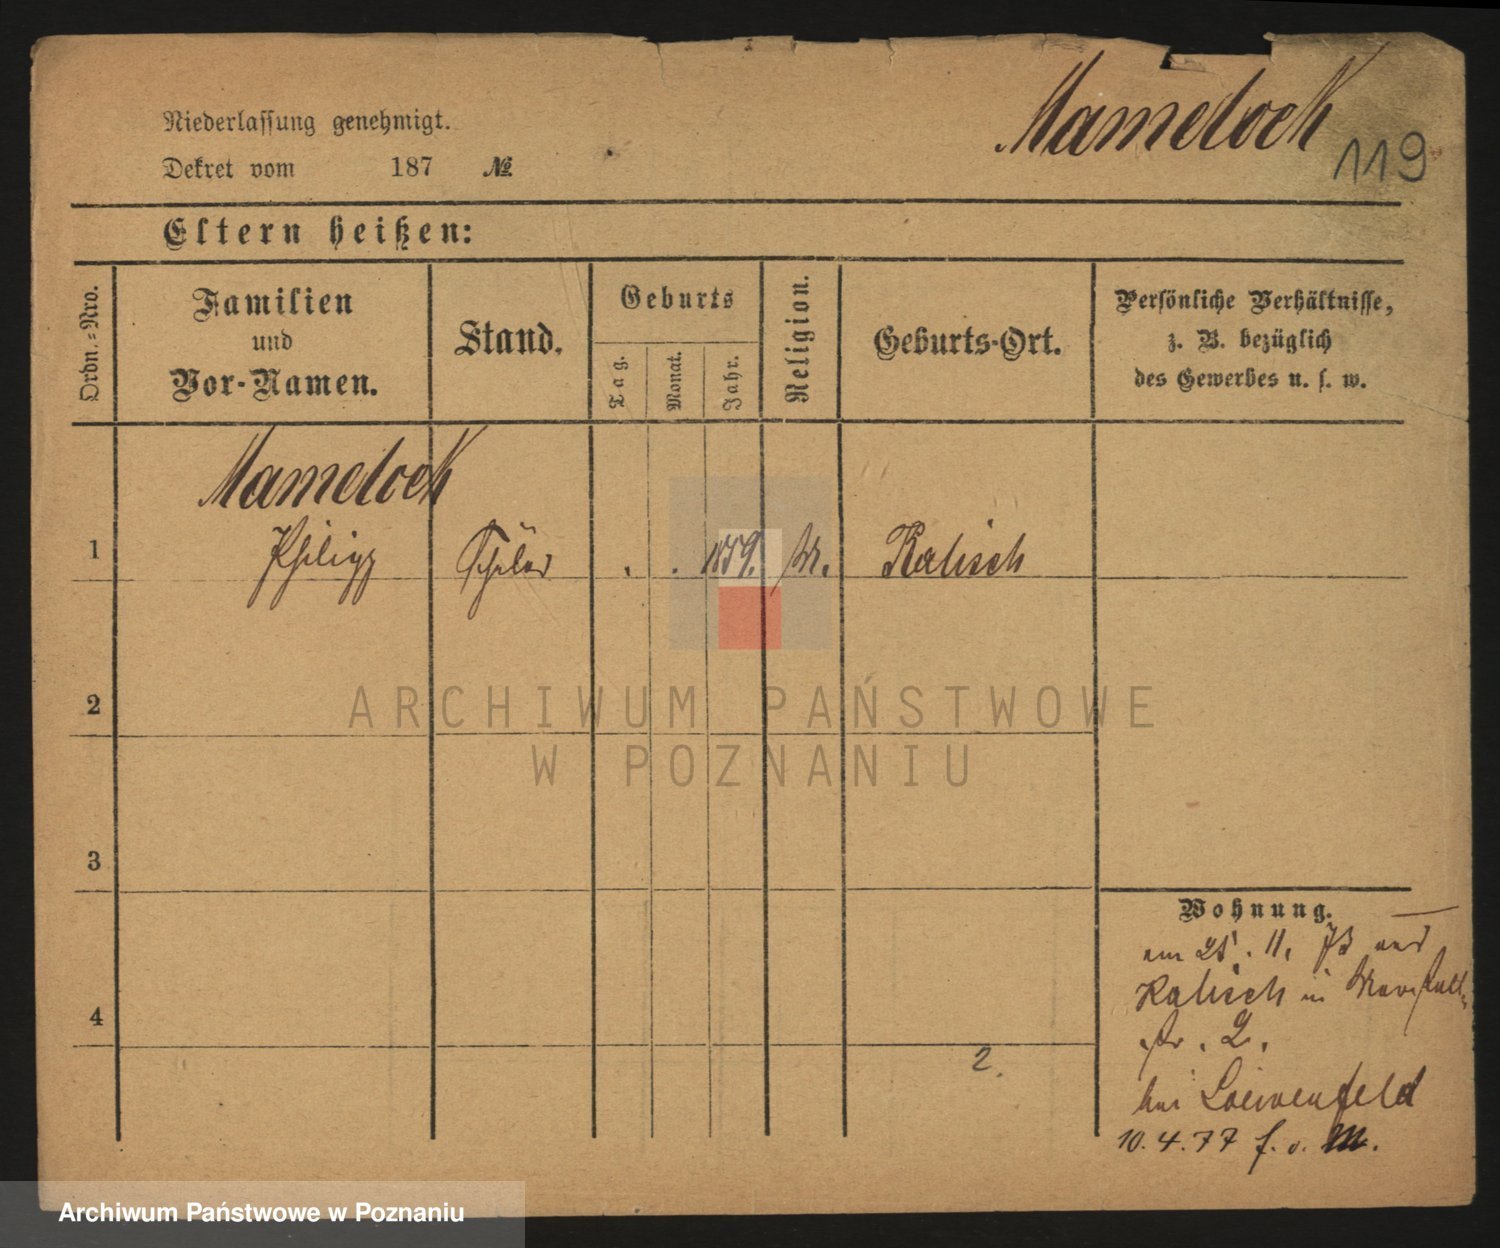 Mamelock
119
Niederlassung genehmigt.
Dekret vom 187 №
Eltern heißen:
Ordn.-Nro.
Familien
und
Vor-Namen.
Stand.
Geburts
Tag.
Monat.
Jahr.
Religion.
Geburts-Ort.
Persönliche Verhältnisse,
z. B. bezüglich
des Gewerbes u. s. w.
Mamelock
1 Philipp Schüler . . 1859. M. Kalisch
2
3
4
2.
Wohnung.
am 25. 11. 73 aus
Kalisch in
str. 2.
bei Loewenfeld
10. 4. 77 f. v. M.
ARCHIWUM PAŃSTWOWE
W POZNANIU
Archiwum Państwowe w Poznaniu